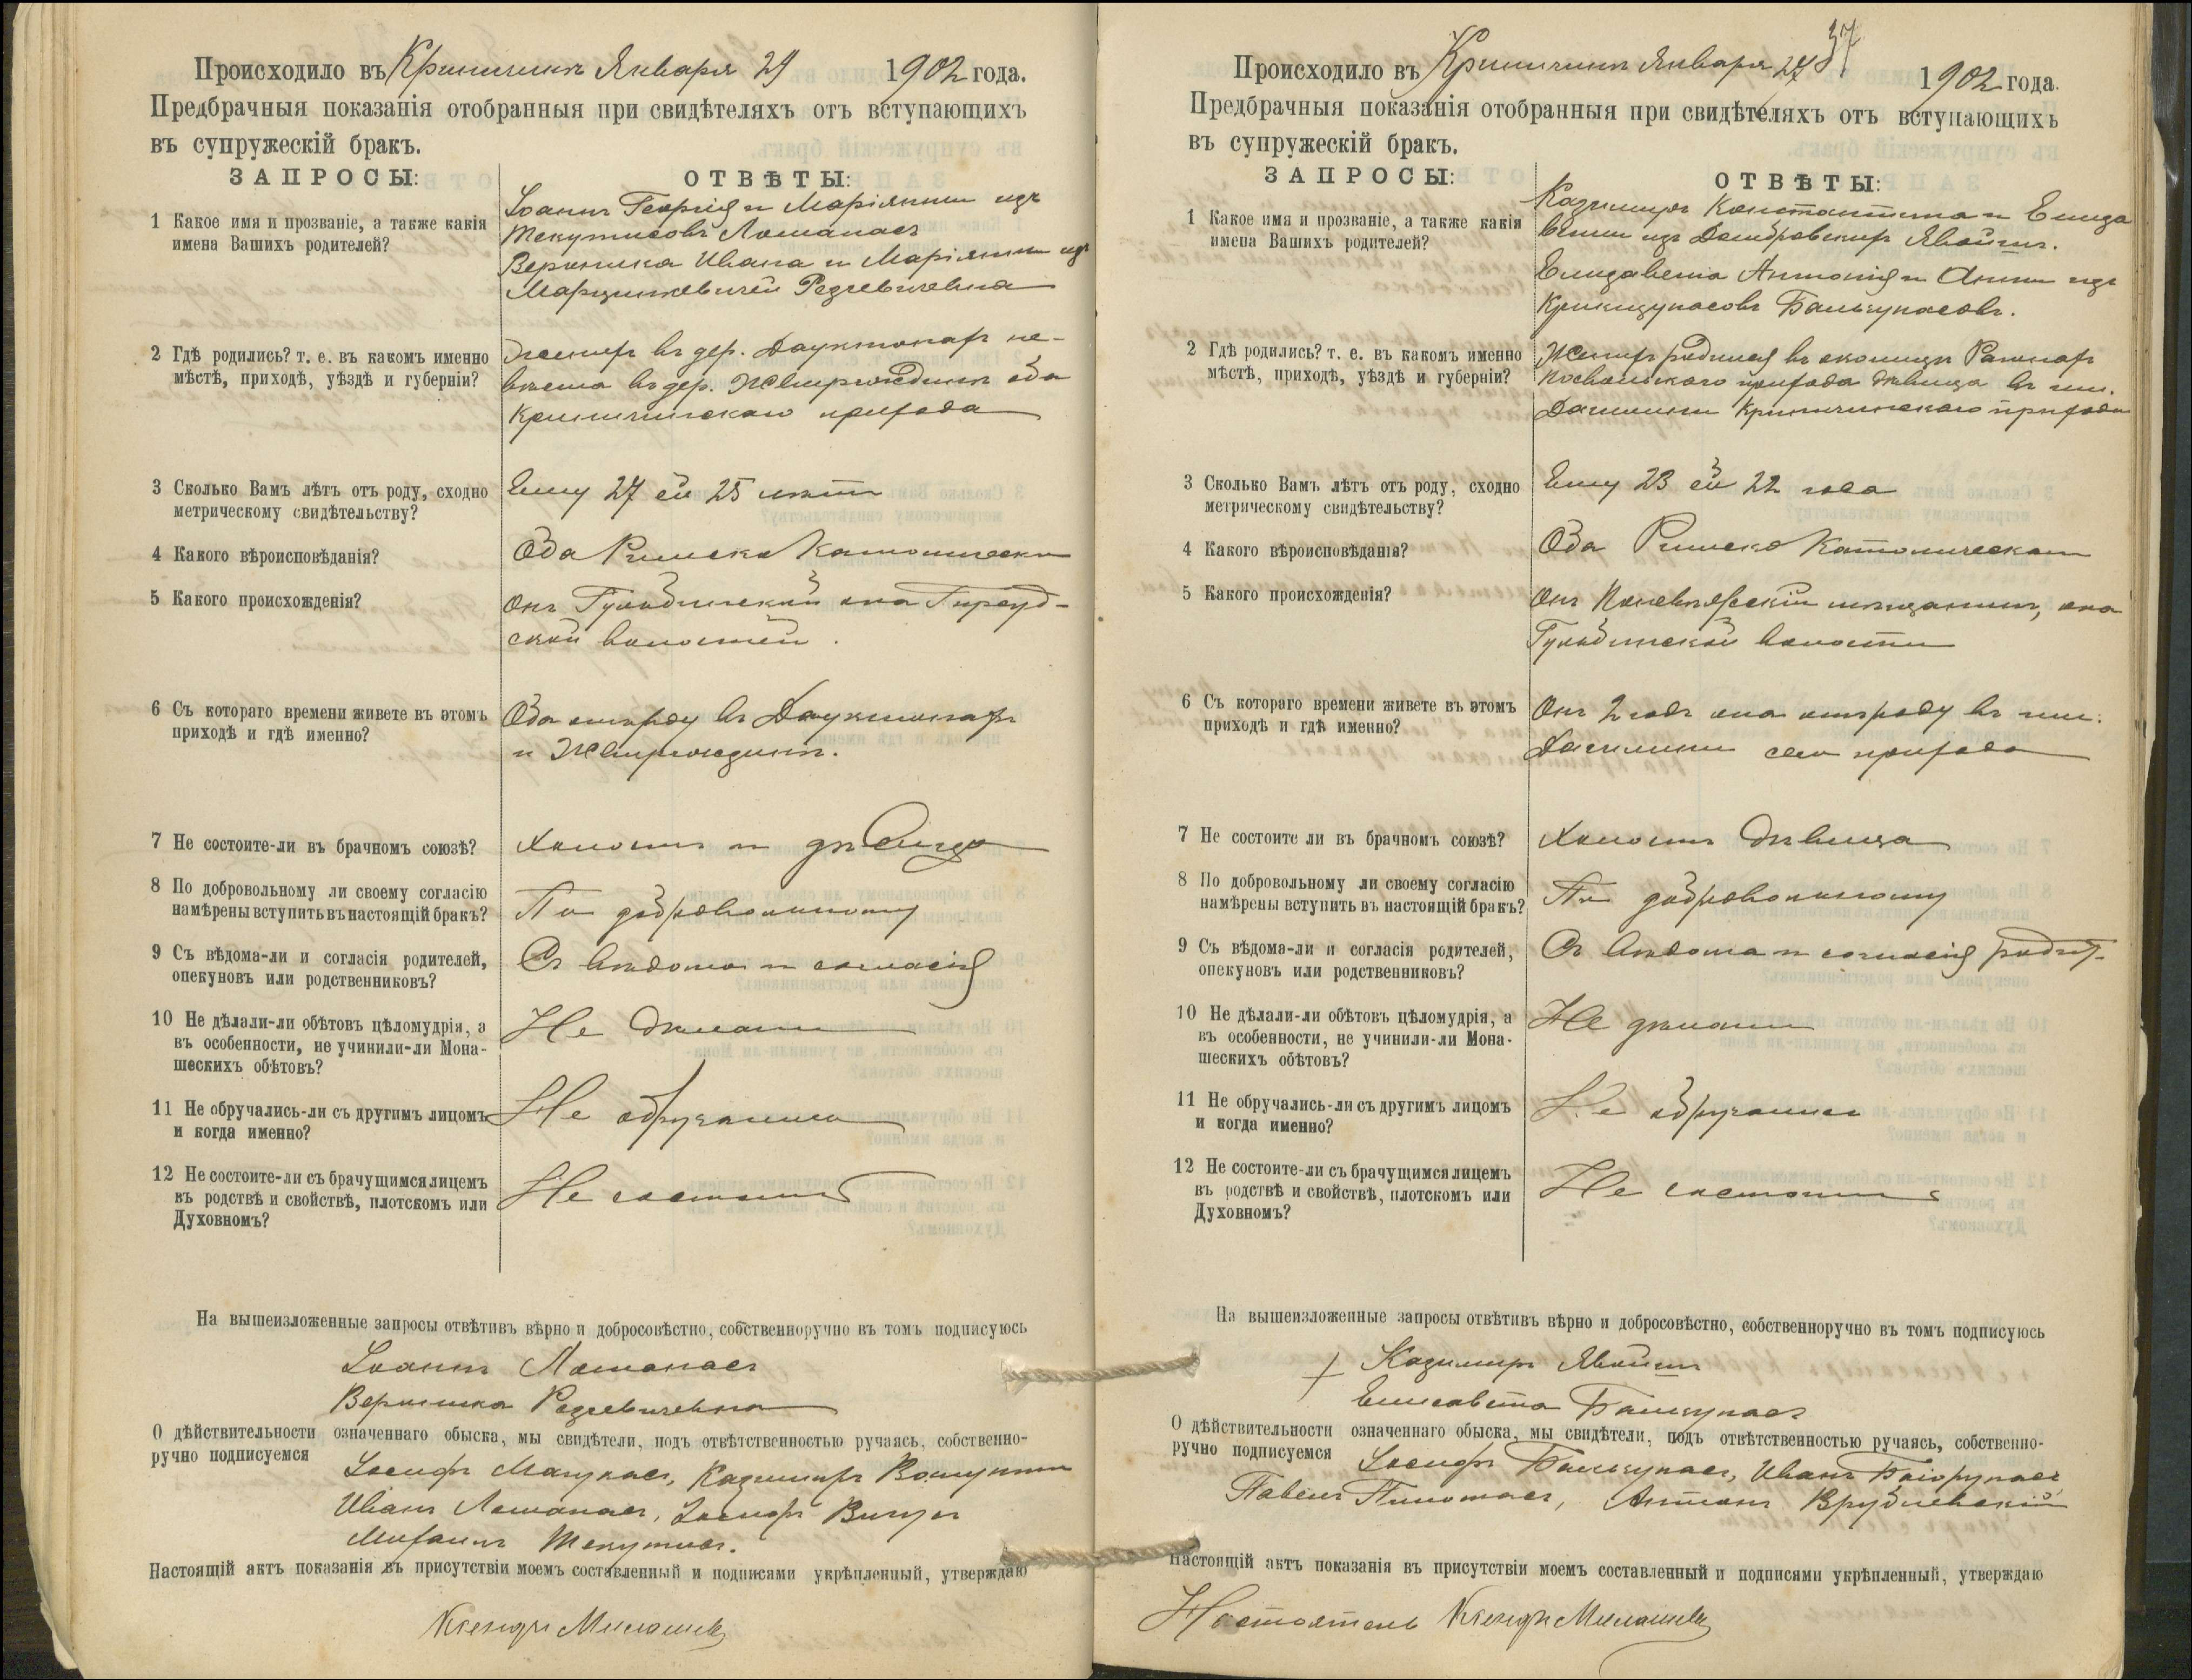 Происходило въ Криничинѣ Января 29 1902 года.
Предбрачныя показанія отобранныя при свидѣтеляхъ отъ вступающихъ
въ супружескій бракъ.
ЗАПРОСЫ:
ОТВѢТЫ:
1 Какое имя и прозваніе, а также какія
имена Вашихъ родителей?
Іоаннъ Георгія и Маріянны изъ
Текутисовъ Лошанасъ
Вероника Ивана и Маріянны изъ
Марцинкевичей
2 Гдѣ родились? т. е. въ какомъ именно
мѣстѣ, приходѣ, уѣздѣ и губерніи?
Женихъ въ дер. не-
вѣста въ дер. оба
Криничинскаго прихода
3 Сколько Вамъ лѣтъ отъ роду, сходно
метрическому свидѣтельству?
Ему 27 ей 25 лѣтъ
4 Какого вѣроисповѣданія?
Оба Римско Католическаго
5 Какого происхожденія?
Онъ она
волостей.
6 Съ котораго времени живете въ этомъ
приходѣ и гдѣ именно?
Оба отъ роду въ
и
7 Не состоите-ли въ брачномъ союзѣ?
Холостъ и дѣвица
8 По добровольному ли своему согласію
намѣрены вступить въ настоящій бракъ?
По добровольному
9 Съ вѣдома-ли и согласія родителей,
опекуновъ или родственниковъ?
Съ вѣдома и согласія
10 Не дѣлали-ли обѣтовъ цѣломудрія, а
въ особенности, не учинили-ли Мона-
шескихъ обѣтовъ?
Не дѣлали
11 Не обручались-ли съ другимъ лицомъ
и когда именно?
Не обручались
12 Не состоите-ли съ брачущимся лицемъ
въ родствѣ и свойствѣ, плотскомъ или
Духовномъ?
Не состоимъ
На вышеизложенные запросы отвѣтивъ вѣрно и добросовѣстно, собственноручно въ томъ подписуюсь
Іоаннъ Лошанасъ
Вероника
О дѣйствительности означеннаго обыска, мы свидѣтели, подъ отвѣтственностью ручаясь, собственно-
ручно подписуемся
Іосифъ Казимиръ
Иванъ Лошанасъ, Іосифъ
Михаилъ Текутисъ.
Настоящій актъ показанія въ присутствіи моемъ составленный и подписями укрѣпленный, утверждаю
Ксендзъ
37
Происходило въ Криничинѣ Января 27 1902 года.
Предбрачныя показанія отобранныя при свидѣтеляхъ отъ вступающихъ
въ супружескій бракъ.
ЗАПРОСЫ:
ОТВѢТЫ:
1 Какое имя и прозваніе, а также какія
имена Вашихъ родителей?
Казимиръ Константина и Елиза
веты изъ Домбровскихъ Явойшъ.
Елизавета Антонія и Анны изъ
Балькунасовъ.
2 Гдѣ родились? т. е. въ какомъ именно
мѣстѣ, приходѣ, уѣздѣ и губерніи?
Женихъ родился въ околицѣ
прихода дѣвица въ им.
Криничинскаго прихода
3 Сколько Вамъ лѣтъ отъ роду, сходно
метрическому свидѣтельству?
Ему 23 ей 22 года
4 Какого вѣроисповѣданія?
Оба Римско Католическаго
5 Какого происхожденія?
Онъ Поневѣжскій мѣщанинъ, она
волости
6 Съ котораго времени живете въ этомъ
приходѣ и гдѣ именно?
Онъ 2 года она отъ роду въ им.
сего прихода
7 Не состоите ли въ брачномъ союзѣ?
Холостъ дѣвица
8 По добровольному ли своему согласію
намѣрены вступить въ настоящій бракъ?
По добровольному
9 Съ вѣдома-ли и согласія родителей,
опекуновъ или родственниковъ?
Съ вѣдома и согласія родит.
10 Не дѣлали-ли обѣтовъ цѣломудрія, а
въ особенности, не учинили-ли Мона-
шескихъ обѣтовъ?
Не дѣлали
11 Не обручались-ли съ другимъ лицомъ
и когда именно?
Не обручались
12 Не состоите-ли съ брачущимся лицемъ
въ родствѣ и свойствѣ, плотскомъ или
Духовномъ?
Не состоимъ
На вышеизложенные запросы отвѣтивъ вѣрно и добросовѣстно, собственноручно въ томъ подписуюсь
Казимиръ Явойшъ
Елисавета Балькунасъ
О дѣйствительности означеннаго обыска, мы свидѣтели, подъ отвѣтственностью ручаясь, собственно-
ручно подписуемся
Іосифъ Балькунасъ, Иванъ
Павелъ Антонъ Врублевскій
Настоящій актъ показанія въ присутствіи моемъ составленный и подписями укрѣпленный, утверждаю
Настоятель Ксендзъ